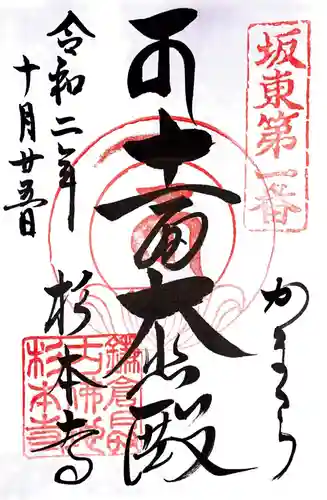 坂東第一番
かまくら
十一面大悲殿
令和二年
十月廿五日
杉本寺
鎌倉
古佛
杉本寺